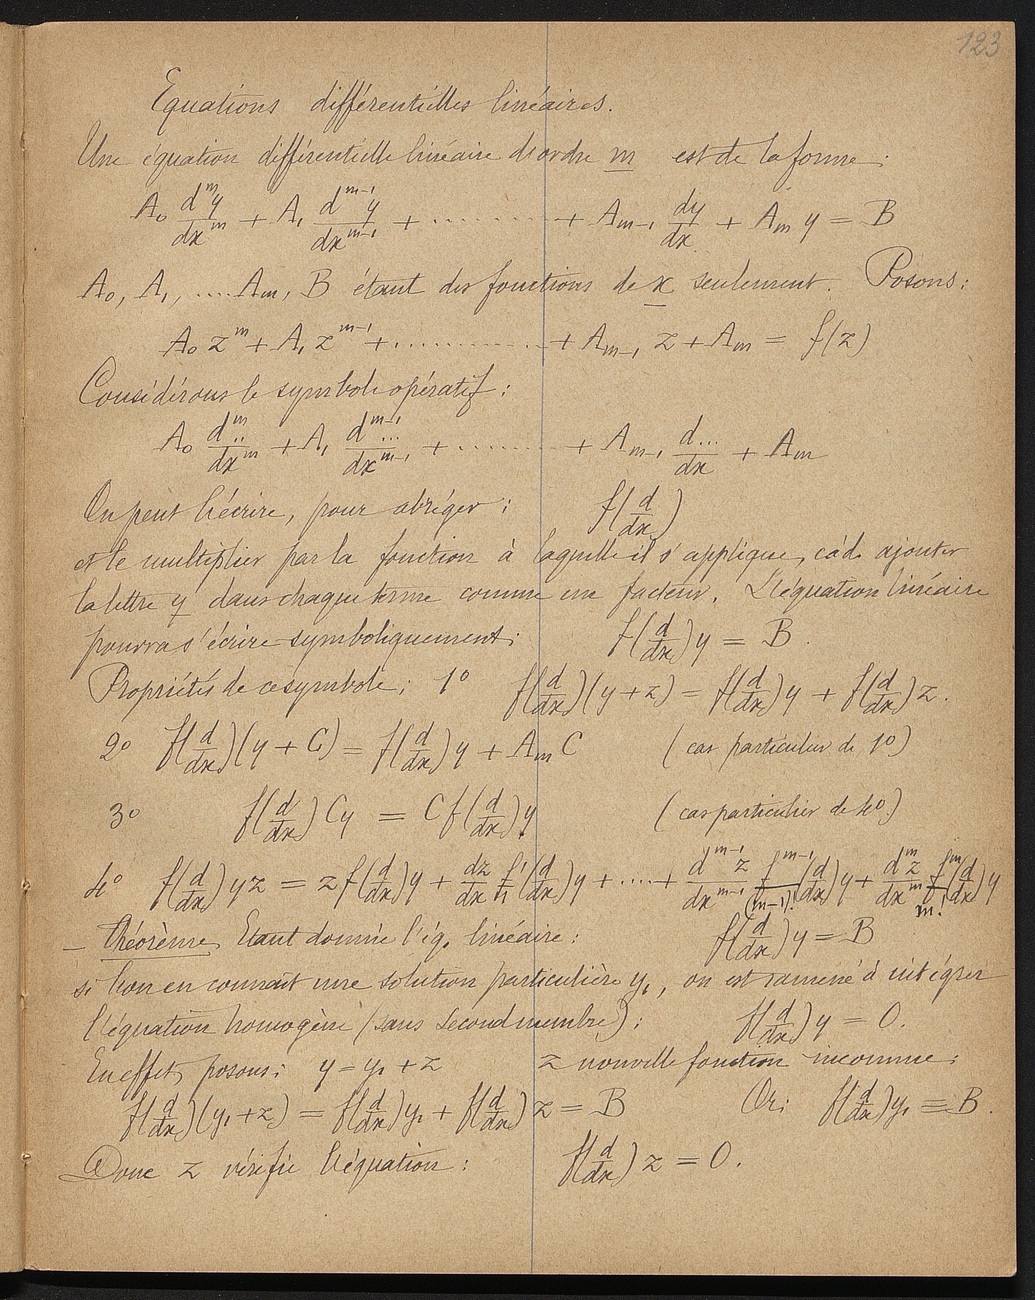 123
Equations différentielles linéaires.
Une équation différentielle linéaire d'ordre m est de la forme:
A₀ dᵐy/dxᵐ + A₁ dᵐ⁻¹y/dxᵐ⁻¹ + .......... + Aₘ₋₁ dy/dx + Aₘ y = B
A₀, A₁, ..... Aₘ, B étant des fonctions de x seulement. Posons:
A₀ zᵐ + A₁ zᵐ⁻¹ + ............ + Aₘ₋₁ z + Aₘ = f(z)
Considérons le symbole opératif:
A₀ dᵐ../dxᵐ + A₁ dᵐ⁻¹.../dxᵐ⁻¹ + .......... + Aₘ₋₁ d.../dx + Aₘ
On peut l'écrire, pour abréger: f(d/dx)
et le multiplier par la fonction à laquelle il s'applique, càd. ajouter
la lettre y dans chaque terme comme un facteur. L'équation linéaire
pourra s'écrire symboliquement: f(d/dx)y = B.
Propriétés de ce symbole: 1° f(d/dx)(y+z) = f(d/dx)y + f(d/dx)z.
2° f(d/dx)(y + C) = f(d/dx)y + Aₘ C (cas particulier de 1°)
3° f(d/dx) Cy = C f(d/dx)y (cas particulier de 4°)
4° f(d/dx) yz = z f(d/dx)y + dz/dx f'/1 (d/dx)y + ..... + dᵐ⁻¹z/dxᵐ⁻¹ fᵐ⁻¹/(m-1)! (d/dx)y + dᵐz/dxᵐ fᵐ/m! (d/dx)y
– Théorème. Etant donnée l'éq. linéaire: f(d/dx)y = B
si l'on en connaît une solution particulière y₁, on est ramené à intégrer
l'équation homogène (sans second membre): f(d/dx)y = 0.
En effet, posons: y = y₁ + z z nouvelle fonction inconnue:
f(d/dx)(y₁+z) = f(d/dx)y₁ + f(d/dx) z = B Or: f(d/dx)y₁ ≡ B.
Donc z vérifie l'équation: f(d/dx) z = 0.